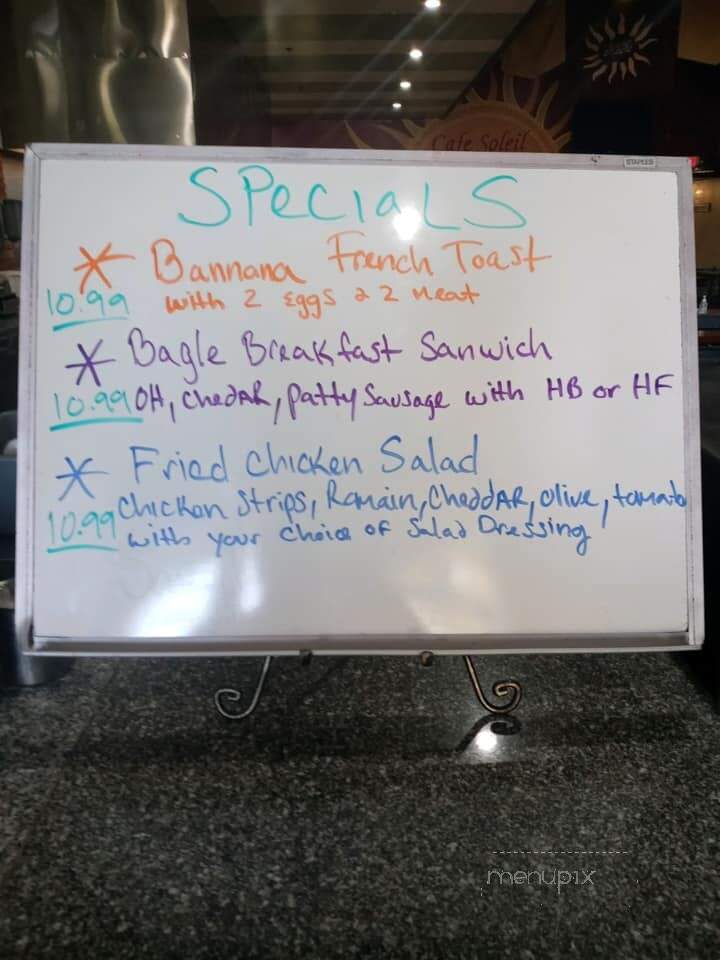 Cafe Soleil
STAPLES
SPeciaLS
* Bannana French Toast
10.99 with 2 Eggs & 2 Meat
* Bagle Breakfast Sanwich
10.99 OH, chedAR, patty Sausage with HB or HF
* Fried Chicken Salad
10.99 Chicken Strips, Romain, CheddAR, olive, tomato
with your choice OF Salad Dressing
menupix